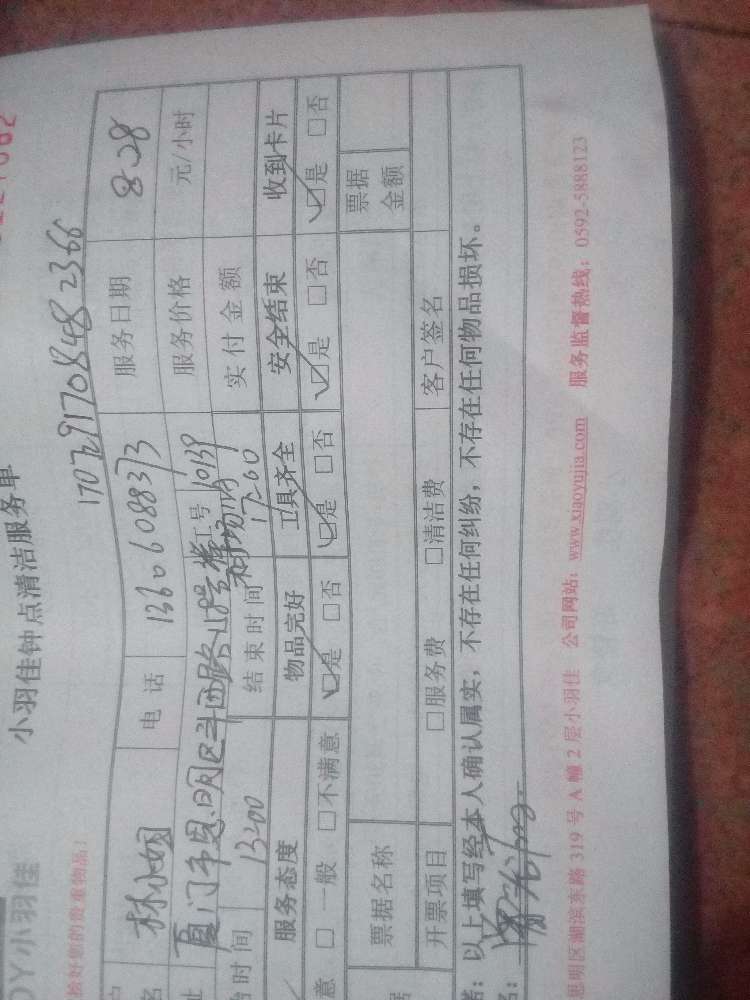 小羽佳
小羽佳钟点清洁服务单
拾好您的贵重物品！
1707291708482366
名 林小姐 电话 13606088373 服务日期 8.28
址 厦门市思明区斗西路 工号 10139 服务价格 元/小时
始时间 13:00 结束时间 17:00 实付金额
服务态度 物品完好 工具齐全 安全结束 收到卡片
意 □一般 □不满意 ☑是 □否 ☑是 □否 ☑是 □否 ☑是 □否
据 票据名称 票据金额
开票项目 □服务费 □清洁费 客户签名
以上填写经本人确认属实，不存在任何纠纷，不存在任何物品损坏。
思明区湖滨东路 319 号 A 幢 2 层小羽佳 公司网站：www.xiaoyujia.com 服务监督热线：0592-5888123